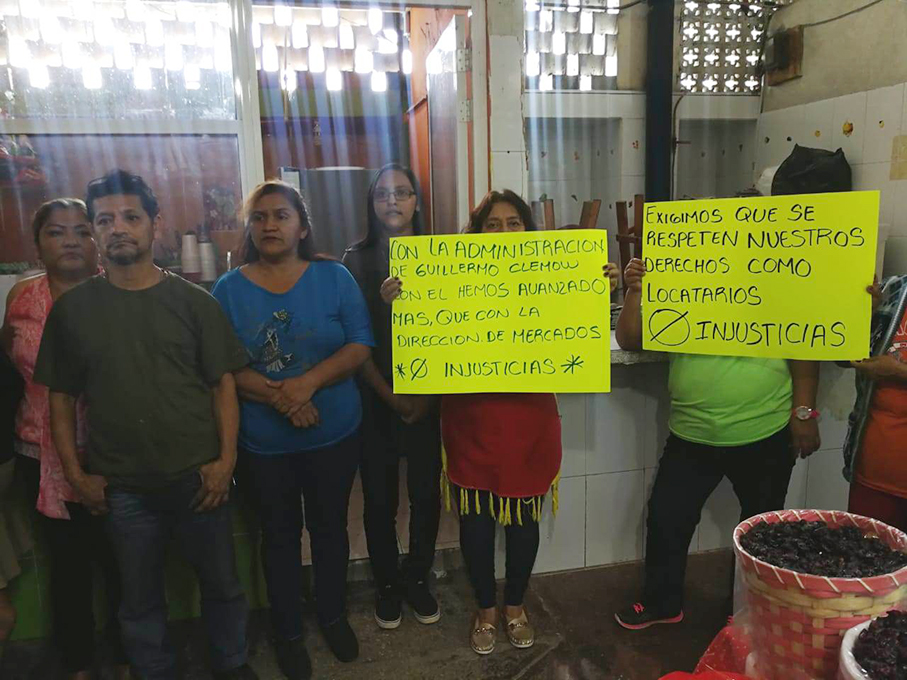 CON LA ADMINISTRACION
DE GUILLERMO CLEMOW
CON EL HEMOS AVANZADO
MAS, QUE CON LA
DIRECCION. DE MERCADOS
*Ø INJUSTICIAS *
EXIGIMOS QUE SE
RESPETEN NUESTROS
DERECHOS COMO
LOCATARIOS
Ø INJUSTICIAS